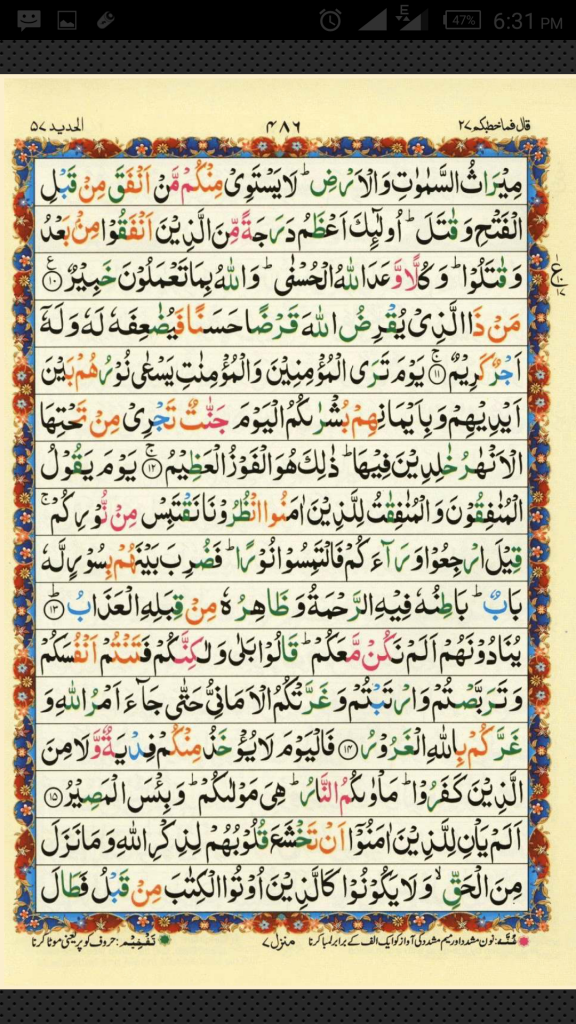 E
47%
6:31 PM
قال فما خطبكم ٢٧
٤٨٦
الحديد ٥٧
مِيْرَاثُ السَّمٰوٰتِ وَالْاَرْضِ ؕ لَا يَسْتَوِىْ مِنْكُمْ مَّنْ اَنْفَقَ مِنْ قَبْلِ
الْفَتْحِ وَ قٰتَلَ ؕ اُولٰٓئِكَ اَعْظَمُ دَرَجَةً مِّنَ الَّذِيْنَ اَنْفَقُوْا مِنْۢ بَعْدُ
وَ قٰتَلُوْا ؕ وَ كُلًّا وَّعَدَ اللّٰهُ الْحُسْنٰى ؕ وَ اللّٰهُ بِمَا تَعْمَلُوْنَ خَبِيْرٌ ۧ ١٠
مَنْ ذَا الَّذِىْ يُقْرِضُ اللّٰهَ قَرْضًا حَسَنًا فَيُضٰعِفَهٗ لَهٗ وَ لَهٗۤ
اَجْرٌ كَرِيْمٌ ۚ ١١ يَوْمَ تَرَى الْمُؤْمِنِيْنَ وَ الْمُؤْمِنٰتِ يَسْعٰى نُوْرُهُمْ بَيْنَ
اَيْدِيْهِمْ وَ بِاَيْمَانِهِمْ بُشْرٰىكُمُ الْيَوْمَ جَنّٰتٌ تَجْرِىْ مِنْ تَحْتِهَا
الْاَنْهٰرُ خٰلِدِيْنَ فِيْهَا ؕ ذٰلِكَ هُوَ الْفَوْزُ الْعَظِيْمُ ۚ ١٢ يَوْمَ يَقُوْلُ
الْمُنٰفِقُوْنَ وَ الْمُنٰفِقٰتُ لِلَّذِيْنَ اٰمَنُوا انْظُرُوْنَا نَقْتَبِسْ مِنْ نُّوْرِكُمْ ۚ
قِيْلَ ارْجِعُوْا وَرَآءَكُمْ فَالْتَمِسُوْا نُوْرًا ؕ فَضُرِبَ بَيْنَهُمْ بِسُوْرٍ لَّهٗ
بَابٌ ؕ بَاطِنُهٗ فِيْهِ الرَّحْمَةُ وَ ظَاهِرُهٗ مِنْ قِبَلِهِ الْعَذَابُ ؕ ١٣
يُنَادُوْنَهُمْ اَلَمْ نَكُنْ مَّعَكُمْ ؕ قَالُوْا بَلٰى وَ لٰكِنَّكُمْ فَتَنْتُمْ اَنْفُسَكُمْ
وَ تَرَبَّصْتُمْ وَ ارْتَبْتُمْ وَ غَرَّتْكُمُ الْاَمَانِىُّ حَتّٰى جَآءَ اَمْرُ اللّٰهِ وَ
غَرَّكُمْ بِاللّٰهِ الْغَرُوْرُ ١٤ فَالْيَوْمَ لَا يُؤْخَذُ مِنْكُمْ فِدْيَةٌ وَّ لَا مِنَ
الَّذِيْنَ كَفَرُوْا ؕ مَاْوٰىكُمُ النَّارُ ؕ هِىَ مَوْلٰىكُمْ ؕ وَ بِئْسَ الْمَصِيْرُ ١٥
اَلَمْ يَاْنِ لِلَّذِيْنَ اٰمَنُوْۤا اَنْ تَخْشَعَ قُلُوْبُهُمْ لِذِكْرِ اللّٰهِ وَ مَا نَزَلَ
مِنَ الْحَقِّ ۙ وَ لَا يَكُوْنُوْا كَالَّذِيْنَ اُوْتُوا الْكِتٰبَ مِنْ قَبْلُ فَطَالَ
غُنَّه: نون مشدد اور میم مشدد کی آواز کو ایک الف کے برابر لمبا کرنا
منزل ٧
تَفْخِيْم: حروف کو پُر یعنی موٹا کرنا
ع
١٠
١٧